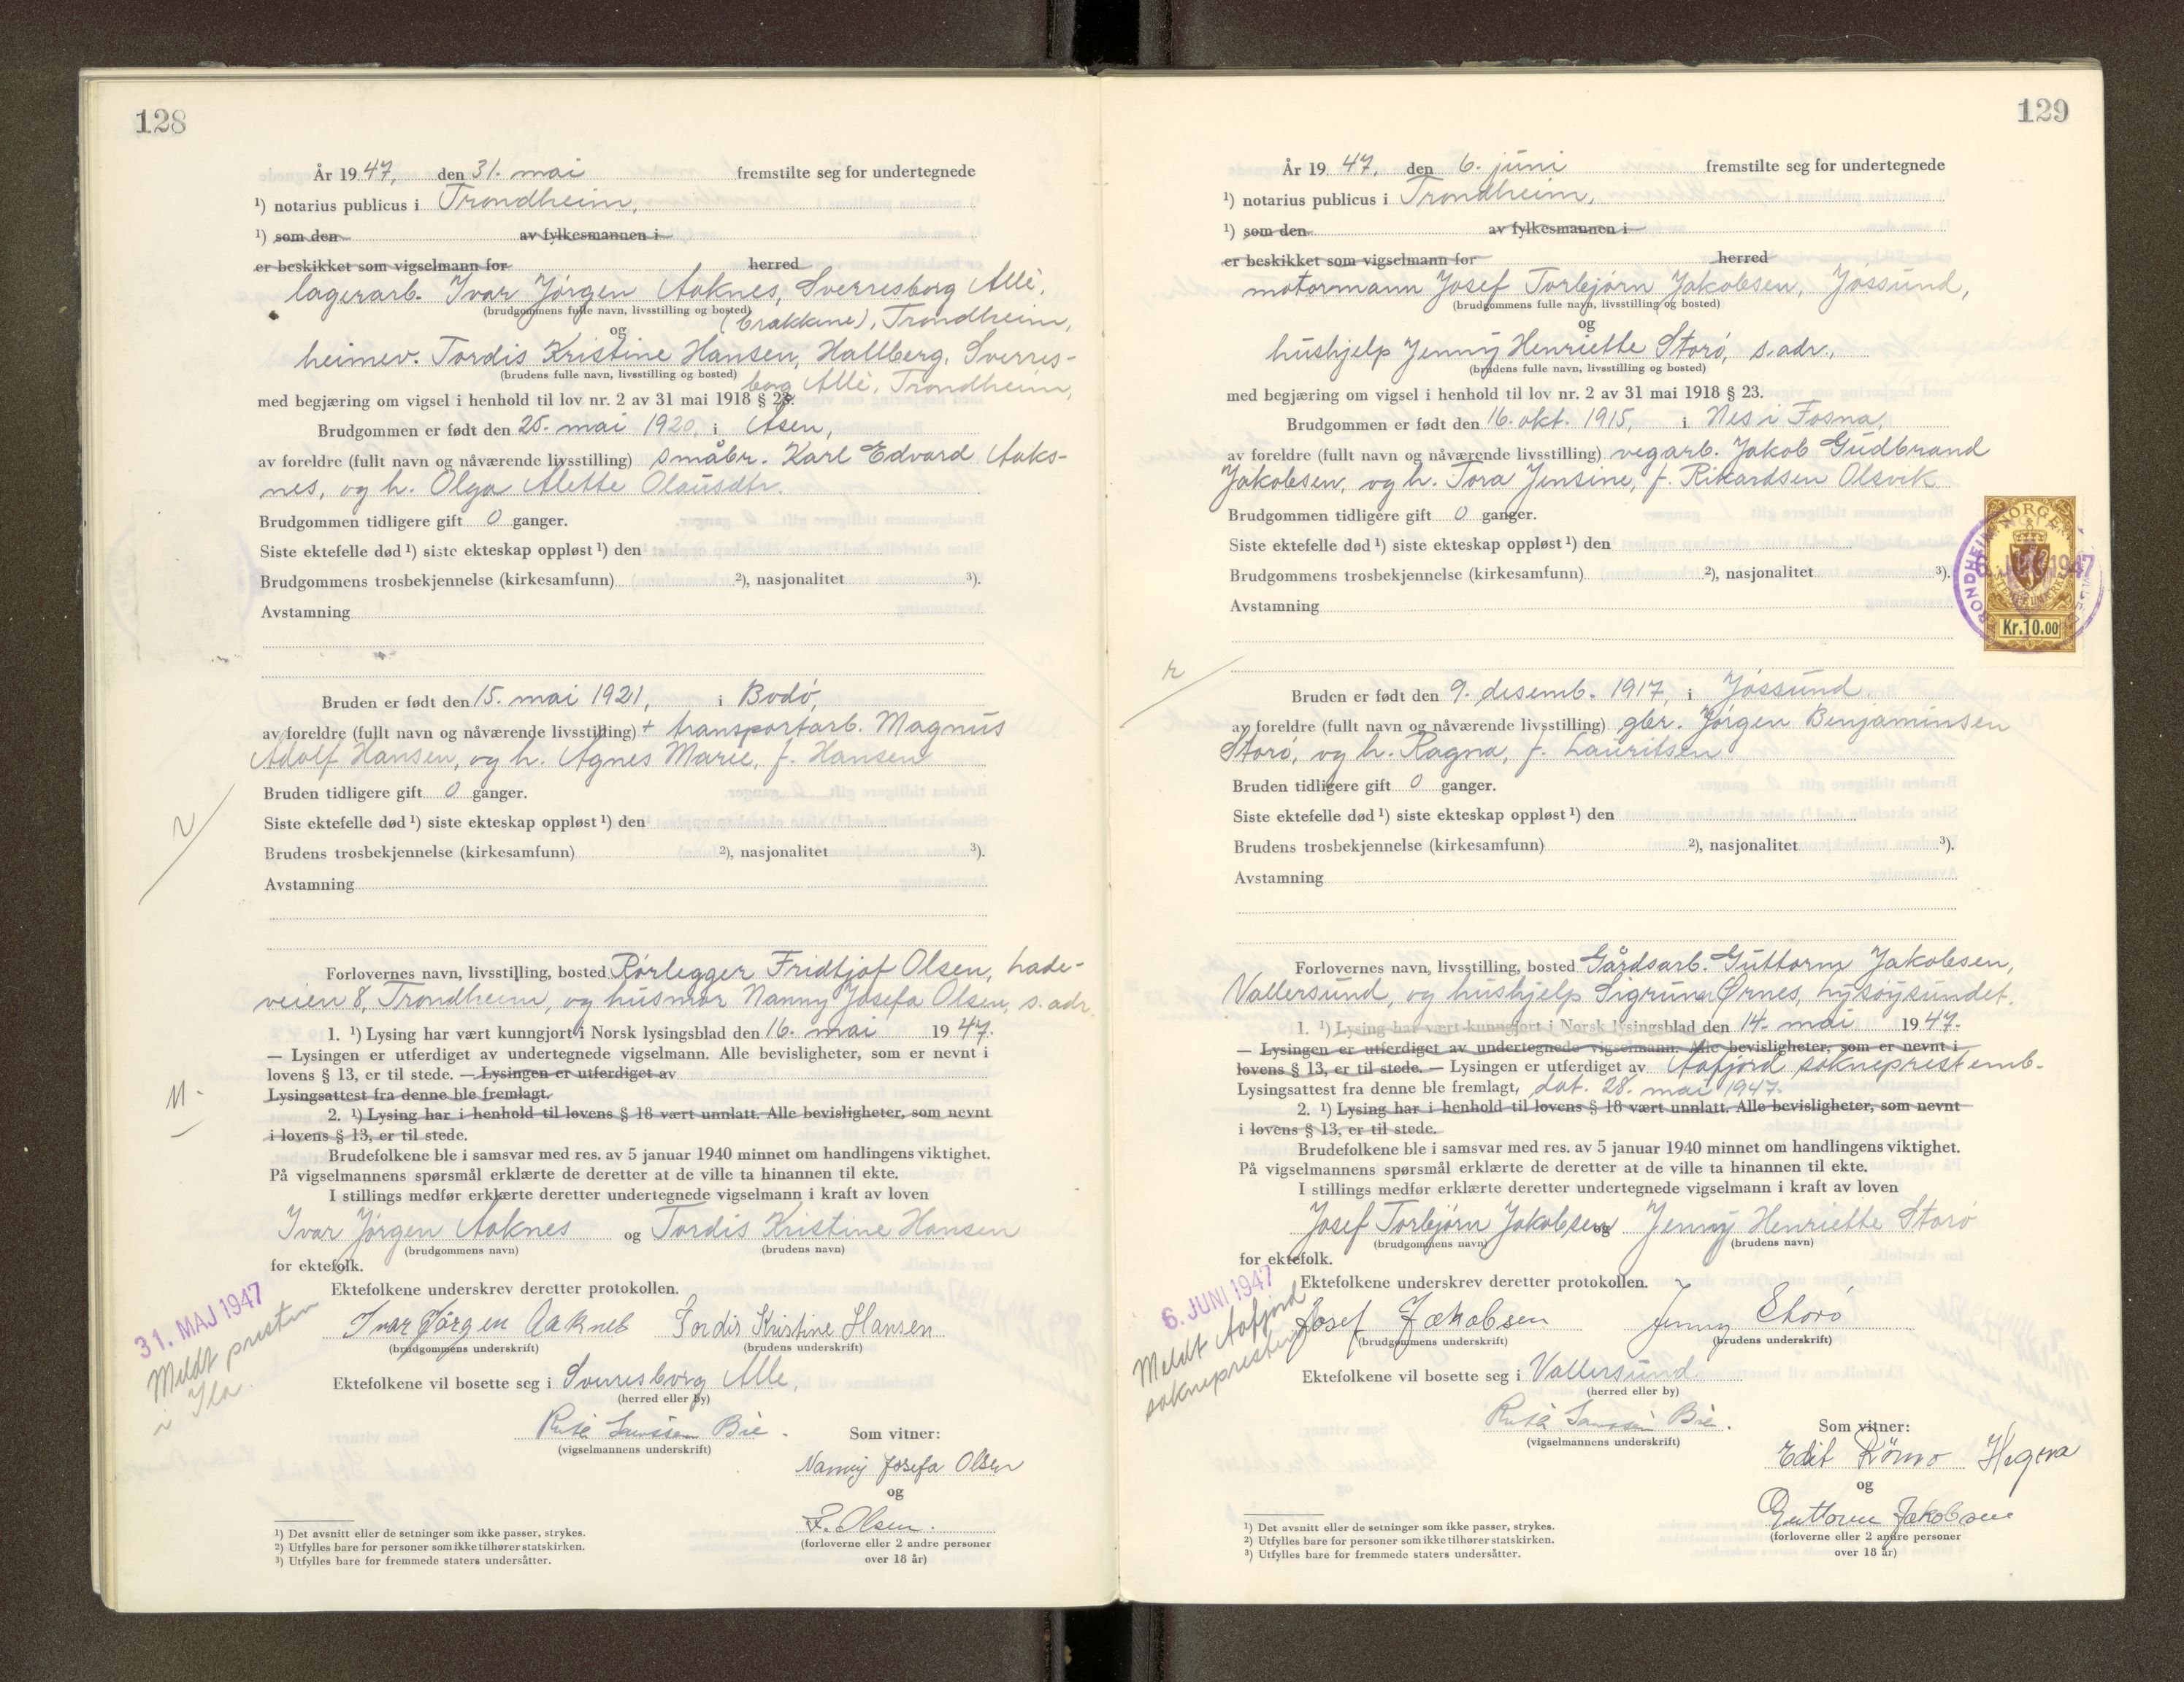 128
År 1947, den 31. mai fremstilte seg for undertegnede
¹) notarius publicus i Trondheim,
¹) som den av fylkesmannen i
er beskikket som vigselmann for herred
lagerarb. Ivar Jørgen Aaknes, Sverresborg Allé,
(brudgommens fulle navn, livsstilling og bosted) (brakkene), Trondheim,
og
heimev. Tordis Kristine Hansen, Hallberg, Sverres-
(brudens fulle navn, livsstilling og bosted) borg Allé, Trondheim,
med begjæring om vigsel i henhold til lov nr. 2 av 31 mai 1918 § 23.
Brudgommen er født den 25. mai 1920, i Åsen,
av foreldre (fullt navn og nåværende livsstilling) småbr. Karl Edvard Aaks-
nes, og h. Olga Alette Olausdtr.
Brudgommen tidligere gift 0 ganger.
Siste ektefelle død ¹) siste ekteskap oppløst ¹) den
Brudgommens trosbekjennelse (kirkesamfunn) ²), nasjonalitet ³).
Avstamning
Bruden er født den 15. mai 1921, i Bodø,
av foreldre (fullt navn og nåværende livsstilling) + transportarb. Magnus
Adolf Hansen, og h. Agnes Marie, f. Hansen
Bruden tidligere gift 0 ganger.
Siste ektefelle død ¹) siste ekteskap oppløst ¹) den
Brudens trosbekjennelse (kirkesamfunn) ²), nasjonalitet ³).
Avstamning
Forlovernes navn, livsstilling, bosted Rørlegger Fridtjof Olsen, Lade-
veien 8, Trondheim, og husmor Nanny Josefa Olsen, s. adr.
1. ¹) Lysing har vært kunngjort i Norsk lysingsblad den 16. mai 1947.
— Lysingen er utferdiget av undertegnede vigselmann. Alle bevisligheter, som er nevnt i
lovens § 13, er til stede. — Lysingen er utferdiget av
Lysingsattest fra denne ble fremlagt.
2. ¹) Lysing har i henhold til lovens § 18 vært unnlatt. Alle bevisligheter, som nevnt
i lovens § 13, er til stede.
Brudefolkene ble i samsvar med res. av 5 januar 1940 minnet om handlingens viktighet.
På vigselmannens spørsmål erklærte de deretter at de ville ta hinannen til ekte.
I stillings medfør erklærte deretter undertegnede vigselmann i kraft av loven
Ivar Jørgen Aaknes og Tordis Kristine Hansen
(brudgommens navn) (brudens navn)
for ektefolk.
Ektefolkene underskrev deretter protokollen.
31. MAJ 1947
Meldt presten
i Ila.
Ivar Jørgen Aaknes Tordis Kristine Hansen
(brudgommens underskrift) (brudens underskrift)
Ektefolkene vil bosette seg i Sverresborg Alle,
(herred eller by)
Bie.
(vigselmannens underskrift)
Som vitner:
Nanny Josefa Olsen
og
F. Olsen.
(forloverne eller 2 andre personer
over 18 år)
¹) Det avsnitt eller de setninger som ikke passer, strykes.
²) Utfylles bare for personer som ikke tilhører statskirken.
³) Utfylles bare for fremmede staters undersåtter.
129
År 1947, den 6. juni fremstilte seg for undertegnede
¹) notarius publicus i Trondheim,
¹) som den av fylkesmannen i
er beskikket som vigselmann for herred
motormann Josef Torbjørn Jakobsen, Jøssund,
(brudgommens fulle navn, livsstilling og bosted)
og
hushjelp Jenny Henriette Storø, s. adr.,
(brudens fulle navn, livsstilling og bosted)
med begjæring om vigsel i henhold til lov nr. 2 av 31 mai 1918 § 23.
Brudgommen er født den 16. okt. 1915, i Nes i Fosna,
av foreldre (fullt navn og nåværende livsstilling) vegarb. Jakob Gudbrand
Jakobsen, og h. Tora Jensine, f. Rikardsen Olsvik
Brudgommen tidligere gift 0 ganger.
Siste ektefelle død ¹) siste ekteskap oppløst ¹) den
Brudgommens trosbekjennelse (kirkesamfunn) ²), nasjonalitet ³).
Avstamning
NORGE
6. JUNI 1947
Kr.10.00
Bruden er født den 9. desemb. 1917, i Jøssund.
av foreldre (fullt navn og nåværende livsstilling) gbr. Jørgen Benjaminsen
Storø, og h. Ragna, f. Lauritsen
Bruden tidligere gift 0 ganger.
Siste ektefelle død ¹) siste ekteskap oppløst ¹) den
Brudens trosbekjennelse (kirkesamfunn) ²), nasjonalitet ³).
Avstamning
Forlovernes navn, livsstilling, bosted Gårdsarb. Guttorm Jakobsen,
Vallersund, og hushjelp Sigruna Ørnes, Lysøysundet.
1. ¹) Lysing har vært kunngjort i Norsk lysingsblad den 14. mai 1947.
— Lysingen er utferdiget av undertegnede vigselmann. Alle bevisligheter, som er nevnt i
lovens § 13, er til stede. — Lysingen er utferdiget av Aafjord sokneprestemb.
Lysingsattest fra denne ble fremlagt, dat. 28. mai 1947.
2. ¹) Lysing har i henhold til lovens § 18 vært unnlatt. Alle bevisligheter, som nevnt
i lovens § 13, er til stede.
Brudefolkene ble i samsvar med res. av 5 januar 1940 minnet om handlingens viktighet.
På vigselmannens spørsmål erklærte de deretter at de ville ta hinannen til ekte.
I stillings medfør erklærte deretter undertegnede vigselmann i kraft av loven
Josef Torbjørn Jakobsen og Jenny Henriette Storø
(brudgommens navn) (brudens navn)
for ektefolk.
Ektefolkene underskrev deretter protokollen.
6. JUNI 1947
Meldt Aafjord
soknepresten
Josef Jakobsen Jenny Storø
(brudgommens underskrift) (brudens underskrift)
Ektefolkene vil bosette seg i Vallersund
(herred eller by)
Bie.
(vigselmannens underskrift)
Som vitner:
Edit
og
Guttorm Jakobsen
(forloverne eller 2 andre personer
over 18 år)
¹) Det avsnitt eller de setninger som ikke passer, strykes.
²) Utfylles bare for personer som ikke tilhører statskirken.
³) Utfylles bare for fremmede staters undersåtter.